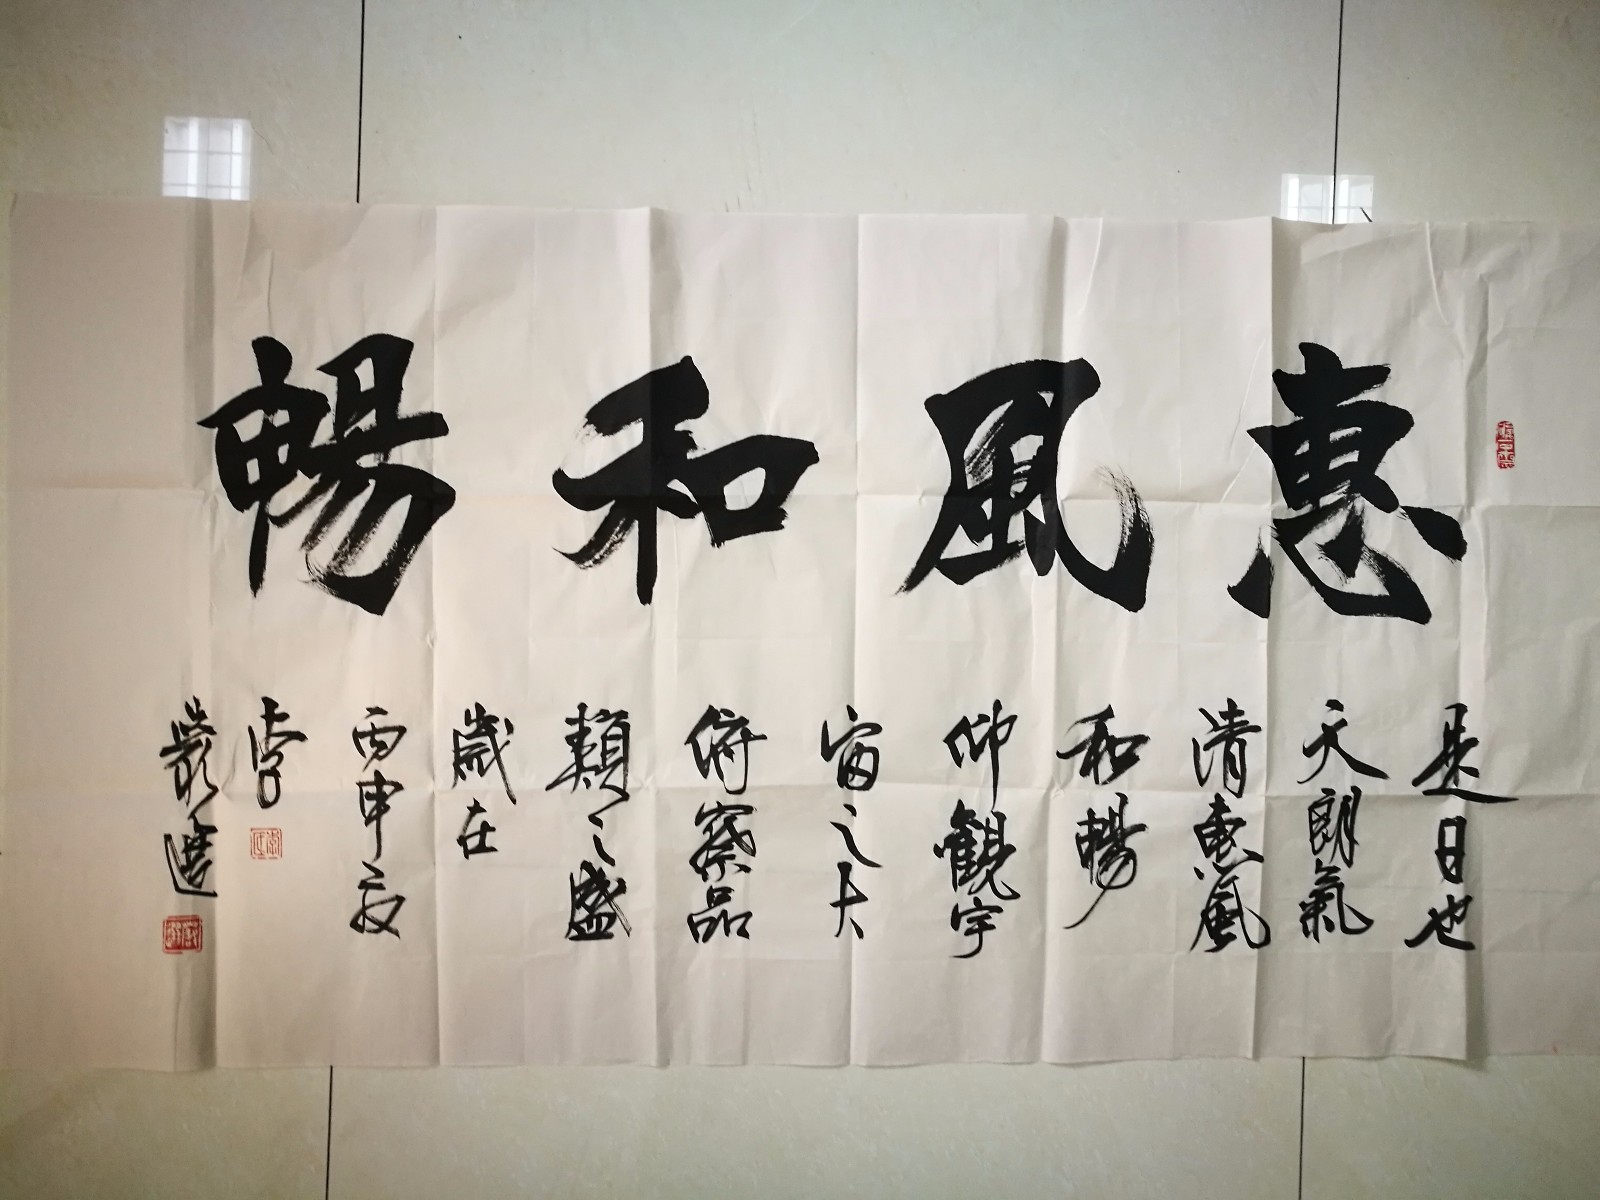 惠風和暢
是日也
天朗氣
清惠風
和暢
仰觀宇
宙之大
俯察品
類之盛
歲在
丙申秋
李
嚴選